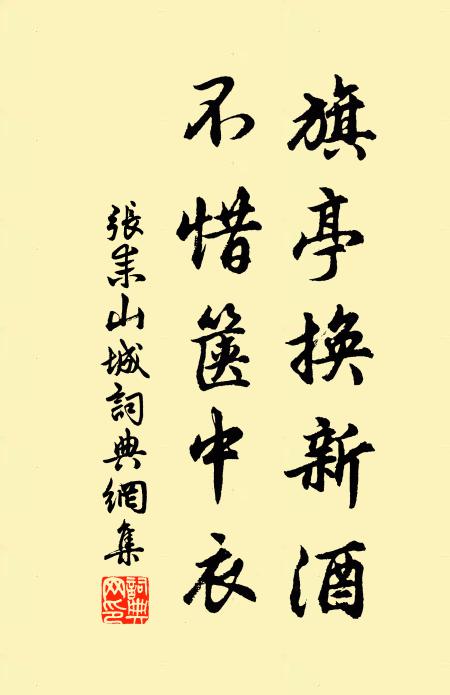 旗亭換新酒
不惜篋中衣
張耒山城詞典網集
詞典网印